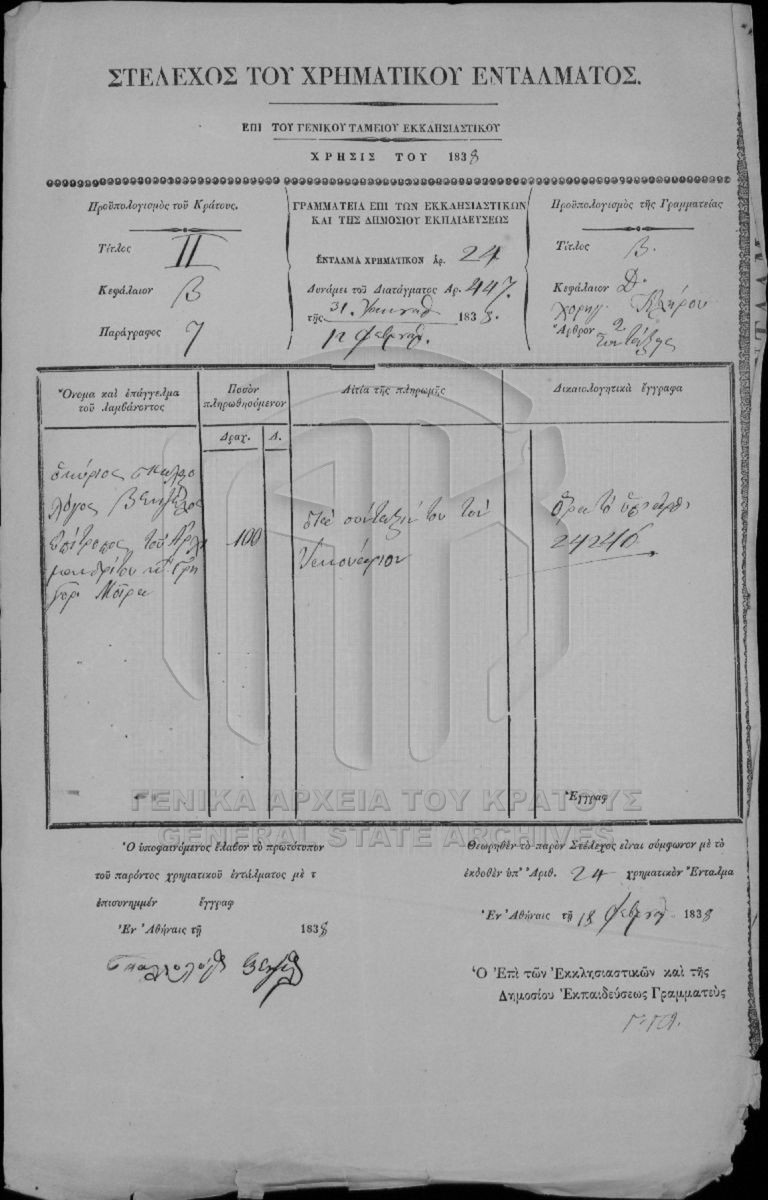 ΣΤΕΛΕΧΟΣ ΤΟΥ ΧΡΗΜΑΤΙΚΟΥ ΕΝΤΑΛΜΑΤΟΣ.
ΕΠΙ ΤΟΥ ΓΕΝΙΚΟΥ ΤΑΜΕΙΟΥ ΕΚΚΛΗΣΙΑΣΤΙΚΟΥ
ΧΡΗΣΙΣ ΤΟΥ 1838
Προϋπολογισμὸς τοῦ Κράτους.
Τίτλος II
Κεφάλαιον Β
Παράγραφος 7
ΓΡΑΜΜΑΤΕΙΑ ΕΠΙ ΤΩΝ ΕΚΚΛΗΣΙΑΣΤΙΚΩΝ
ΚΑΙ ΤΗΣ ΔΗΜΟΣΙΟΥ ΕΚΠΑΙΔΕΥΣΕΩΣ
ΕΝΤΑΛΜΑ ΧΡΗΜΑΤΙΚΟΝ Ἀρ. 24
Δυνάμει τοῦ Διατάγματος Αρ. 447.
τῆς 31 1838.
12
Προϋπολογισμὸς τῆς Γραμματείας
Τίτλος Β.
Κεφάλαιον Δ.
Κλήρου
Ἄρθρον 2
Ὄνομα καὶ ἐπάγγελμα
τοῦ λαμβάνοντος
Ποσὸν
πληρωθησόμενον
Δραχ. Λ.
Αἰτία τῆς πληρωμῆς
Δικαιολογητικὰ ἔγγραφα
ὁ κύριος
Βενιζέλος
Ἐπίτροπος τοῦ
100
διὰ σύνταξίν του τοῦ
Ἰανουάριον
24246
Ἔγγραφ
ΓΕΝΙΚΑ ΑΡΧΕΙΑ ΤΟΥ ΚΡΑΤΟΥΣ
GENERAL STATE ARCHIVES
Ὁ ὑποφαινόμενος ἔλαβον τὸ πρωτότυπον
τοῦ παρόντος χρηματικοῦ ἐντάλματος μὲ τ
ἐπισυνημμέν ἔγγραφ
Ἐν Ἀθήναις τῇ 1838
Θεωρηθὲν τὸ παρὸν Στέλεχος εἶναι σύμφωνον μὲ τὸ
ἐκδοθὲν ὑπ' Ἀριθ. 24 χρηματικὸν Ἔνταλμα
Ἐν Ἀθήναις τῇ 18 1838
Ὁ Ἐπὶ τῶν Ἐκκλησιαστικῶν καὶ τῆς
Δημοσίου Ἐκπαιδεύσεως Γραμματεὺς